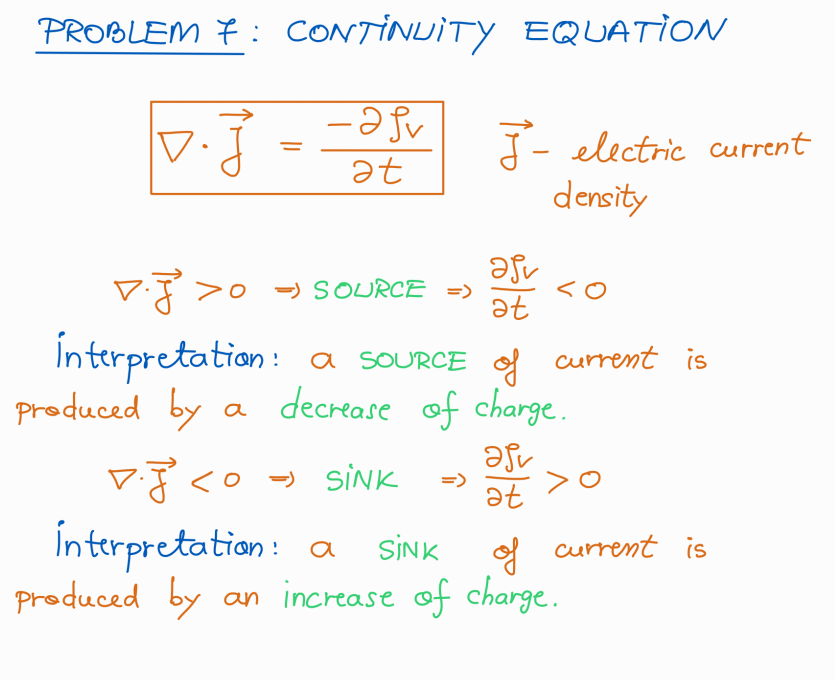 PROBLEM 7: CONTINUITY EQUATION
∇·J⃗ = -∂ρv/∂t    J⃗ - electric current
density
∇·J⃗ > 0 ⇒ SOURCE ⇒ ∂ρv/∂t < 0
Interpretation: a SOURCE of current is
produced by a decrease of charge.
∇·J⃗ < 0 ⇒ SINK ⇒ ∂ρv/∂t > 0
Interpretation: a SINK of current is
produced by an increase of charge.